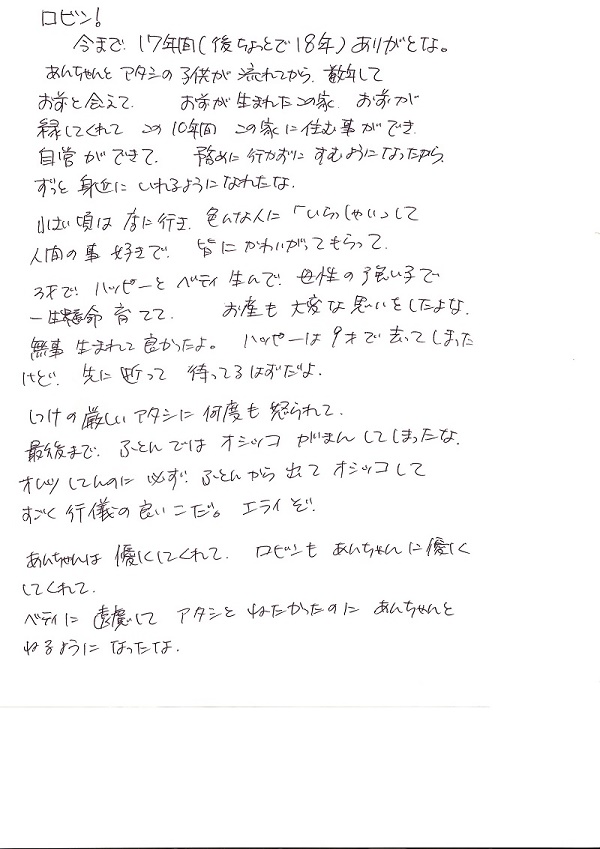 ロビン!
今まで 17年間(後ちょっとで18年)ありがとな。
あんちゃんと アタシの子供が 流れてから、数年して
お前と会えて、 お前が生まれたこの家、お前が
縁してくれて この10年間 この家に住む事ができ
自営ができて、 務めに行かずに すむようになったから
ずっと 身近に いれるようになれたな。
小さい頃は 店に行き、色んな人に「いらっしゃい」して
人間の事 好きで、 皆に かわいがってもらって、
3才で、ハッピーと ベティ 生んで、母性の強い子で
一生懸命 育てて、 お産も 大変な思いをしたよな。
無事 生まれて良かったよ。 ハッピーは 9才で去ってしまった
けど、先に逝って 待ってるはずだよ。
しつけの厳しいアタシに何度も怒られて、
最後まで、ふとんでは オシッコ がまんしてしまったな、
オムツしてんのに 必ず、ふとんから 出て オシッコして
すごく 行儀の良いこだ。 エライぞ!
あんちゃんは 優しくしてくれて、 ロビンも あんちゃんに優しく
してくれて、
ベティに 遠慮して アタシと ねたかったのに あんちゃんと
ねるように なったな。